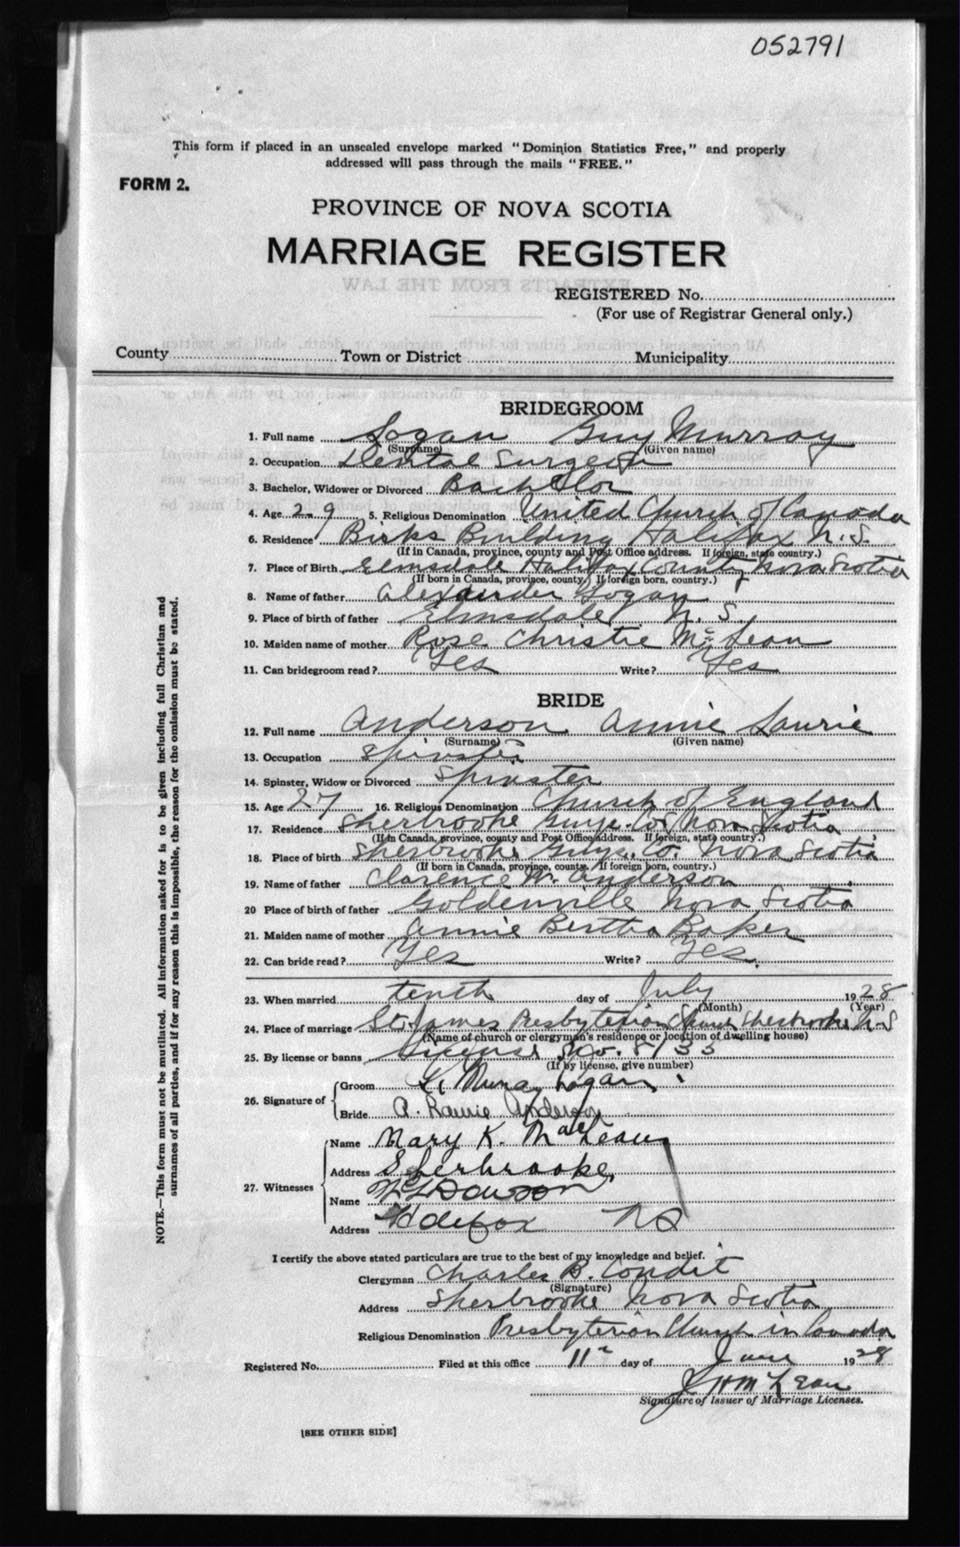 052791
This form if placed in an unsealed envelope marked "Dominion Statistics Free," and properly
addressed will pass through the mails "FREE."
FORM 2.
PROVINCE OF NOVA SCOTIA
MARRIAGE REGISTER
REGISTERED No.
(For use of Registrar General only.)
County Town or District Municipality
BRIDEGROOM
1. Full name Logan Guy Murray
(Surname) (Given name)
2. Occupation Dental Surgeon
3. Bachelor, Widower or Divorced Bachelor
4. Age 29 5. Religious Denomination United Church of Canada
6. Residence Birks Building Halifax N.S.
(If in Canada, province, county and Post Office address. If foreign, state country.)
7. Place of Birth Elmsdale Halifax County Nova Scotia
(If born in Canada, province, county. If foreign born, country.)
8. Name of father Alexander Logan
9. Place of birth of father Elmsdale N. S.
10. Maiden name of mother Rose Christie McLean
11. Can bridegroom read? Yes Write? Yes
BRIDE
12. Full name Anderson Annie Laurie
(Surname) (Given name)
13. Occupation Spinster
14. Spinster, Widow or Divorced Spinster
15. Age 27 16. Religious Denomination Church of England
17. Residence Sherbrooke Guys. Co. Nova Scotia
(If in Canada, province, county and Post Office address. If foreign, state country.)
18. Place of birth Sherbrooke Guys. Co. Nova Scotia
(If born in Canada, province, county. If foreign born, country.)
19. Name of father Clarence W. Anderson
20 Place of birth of father Goldenville Nova Scotia
21. Maiden name of mother Annie Bertha Baker
22. Can bride read? Yes Write? Yes.
23. When married tenth day of July 1928
(Month) (Year)
24. Place of marriage St. James Presbyterian Church Sherbrooke N-S
(Name of church or clergyman's residence or location of dwelling house)
25. By license or banns License No. 8133
(If by license, give number)
26. Signature of
Groom G. Murray Logan
Bride A. Laurie Anderson
27. Witnesses
Name Mary K. MacLean
Address Sherbrooke
Name Dawson
Address Halifax NS
I certify the above stated particulars are true to the best of my knowledge and belief.
Clergyman Charles B. Condit
(Signature)
Address Sherbrooke Nova Scotia
Religious Denomination Presbyterian Church in Canada
Registered No. Filed at this office 11 day of June 1928
J H McLean
Signature of Issuer of Marriage Licenses.
[SEE OTHER SIDE]
NOTE.—This form must not be mutilated. All information asked for is to be given including full Christian and
surnames of all parties, and if for any reason this is impossible, the reason for the omission must be stated.